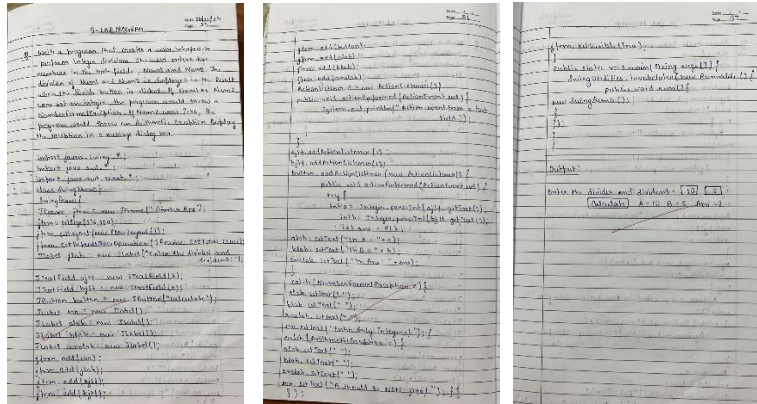 9-LAB PROGRAM
Write a program that creates a user interface to
perform integer divisions. The user enters two
numbers in the text fields, Num1 and Num2. The
division of Num1 and Num2 is displayed in the Result
when the Divide button is clicked. If Num1 or Num2
were not an integer, the program would throw a
NumberFormatException. If Num2 were Zero, the
program would throw an Arithmetic Exception Display
the exception in a message dialog box
import javax.swing.*;
import java.awt.*;
import java.awt.event.*;
class SwingDemo{
SwingDemo(){
JFrame jfrm = new JFrame("Divider App");
jfrm.setSize(275,150);
jfrm.setLayout(new FlowLayout());
jfrm.setDefaultCloseOperation(JFrame.EXIT_ON_CLOSE);
JLabel jlab = new JLabel("Enter the divider and
dividend:");
JTextField ajtf = new JTextField(8);
JTextField bjtf = new JTextField(8);
JButton button = new JButton("Calculate");
JLabel err = new JLabel();
JLabel alab = new JLabel();
JLabel blab = new JLabel();
JLabel anslab = new JLabel();
jfrm.add(err);
jfrm.add(jlab);
jfrm.add(ajtf);
jfrm.add(bjtf);
jfrm.add(button);
jfrm.add(alab);
jfrm.add(blab);
jfrm.add(anslab);
ActionListener l = new ActionListener()
public void actionPerformed(ActionEvent evt) {
System.out.println("Action event from a text
field");
}
}
ajtf.addActionListener(l);
bjtf.addActionListener(l);
button.addActionListener(new ActionListener() {
public void actionPerformed(ActionEvent evt) {
try {
int a = Integer.parseInt(ajtf.getText());
int b = Integer.parseInt(bjtf.getText());
int ans = a/b;
alab.setText("\n A = " + a);
blab.setText("\n B = " + b);
anslab.setText("\n Ans = " + ans);
}
catch(NumberFormatException e){
alab.setText(" ");
blab.setText(" ");
anslab.setText(" ");
err.setText("Enter Only Integers!"); }
catch(ArithmeticException e) {
alab.setText(" ");
blab.setText(" ");
anslab.setText(" ");
err.setText("B should be NON zero!"); } }
});
jfrm.setVisible(true);
}
public static void main(String args[]) {
SwingUtilities.invokeLater(new Runnable() {
public void run(){
new SwingDemo();
}
});
}
}
Output:
Enter the divider and dividend: 10 5
Calculate A=10 B=5 Ans=2